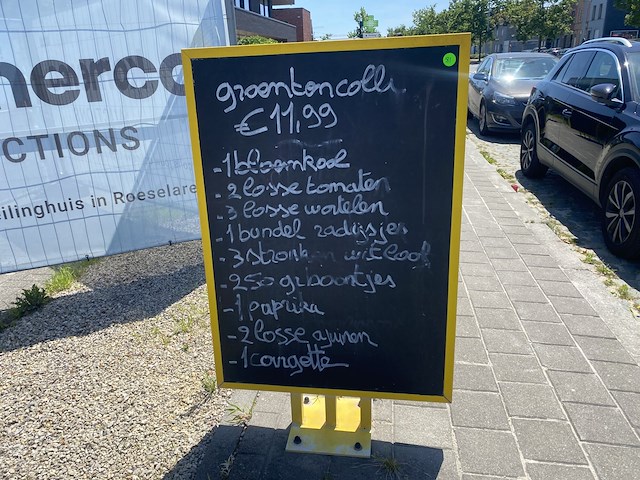 merco
CTIONS
eilinghuis in Roeselare
groentencolli
€ 11,99
- 1 bloemkool
- 2 losse tomaten
- 3 losse wortelen
- 1 bundel radijsjes
- 3 stronken witloof
- 250 gr boontjes
- 1 paprika
- 2 losse ajuinen
- 1 courgette